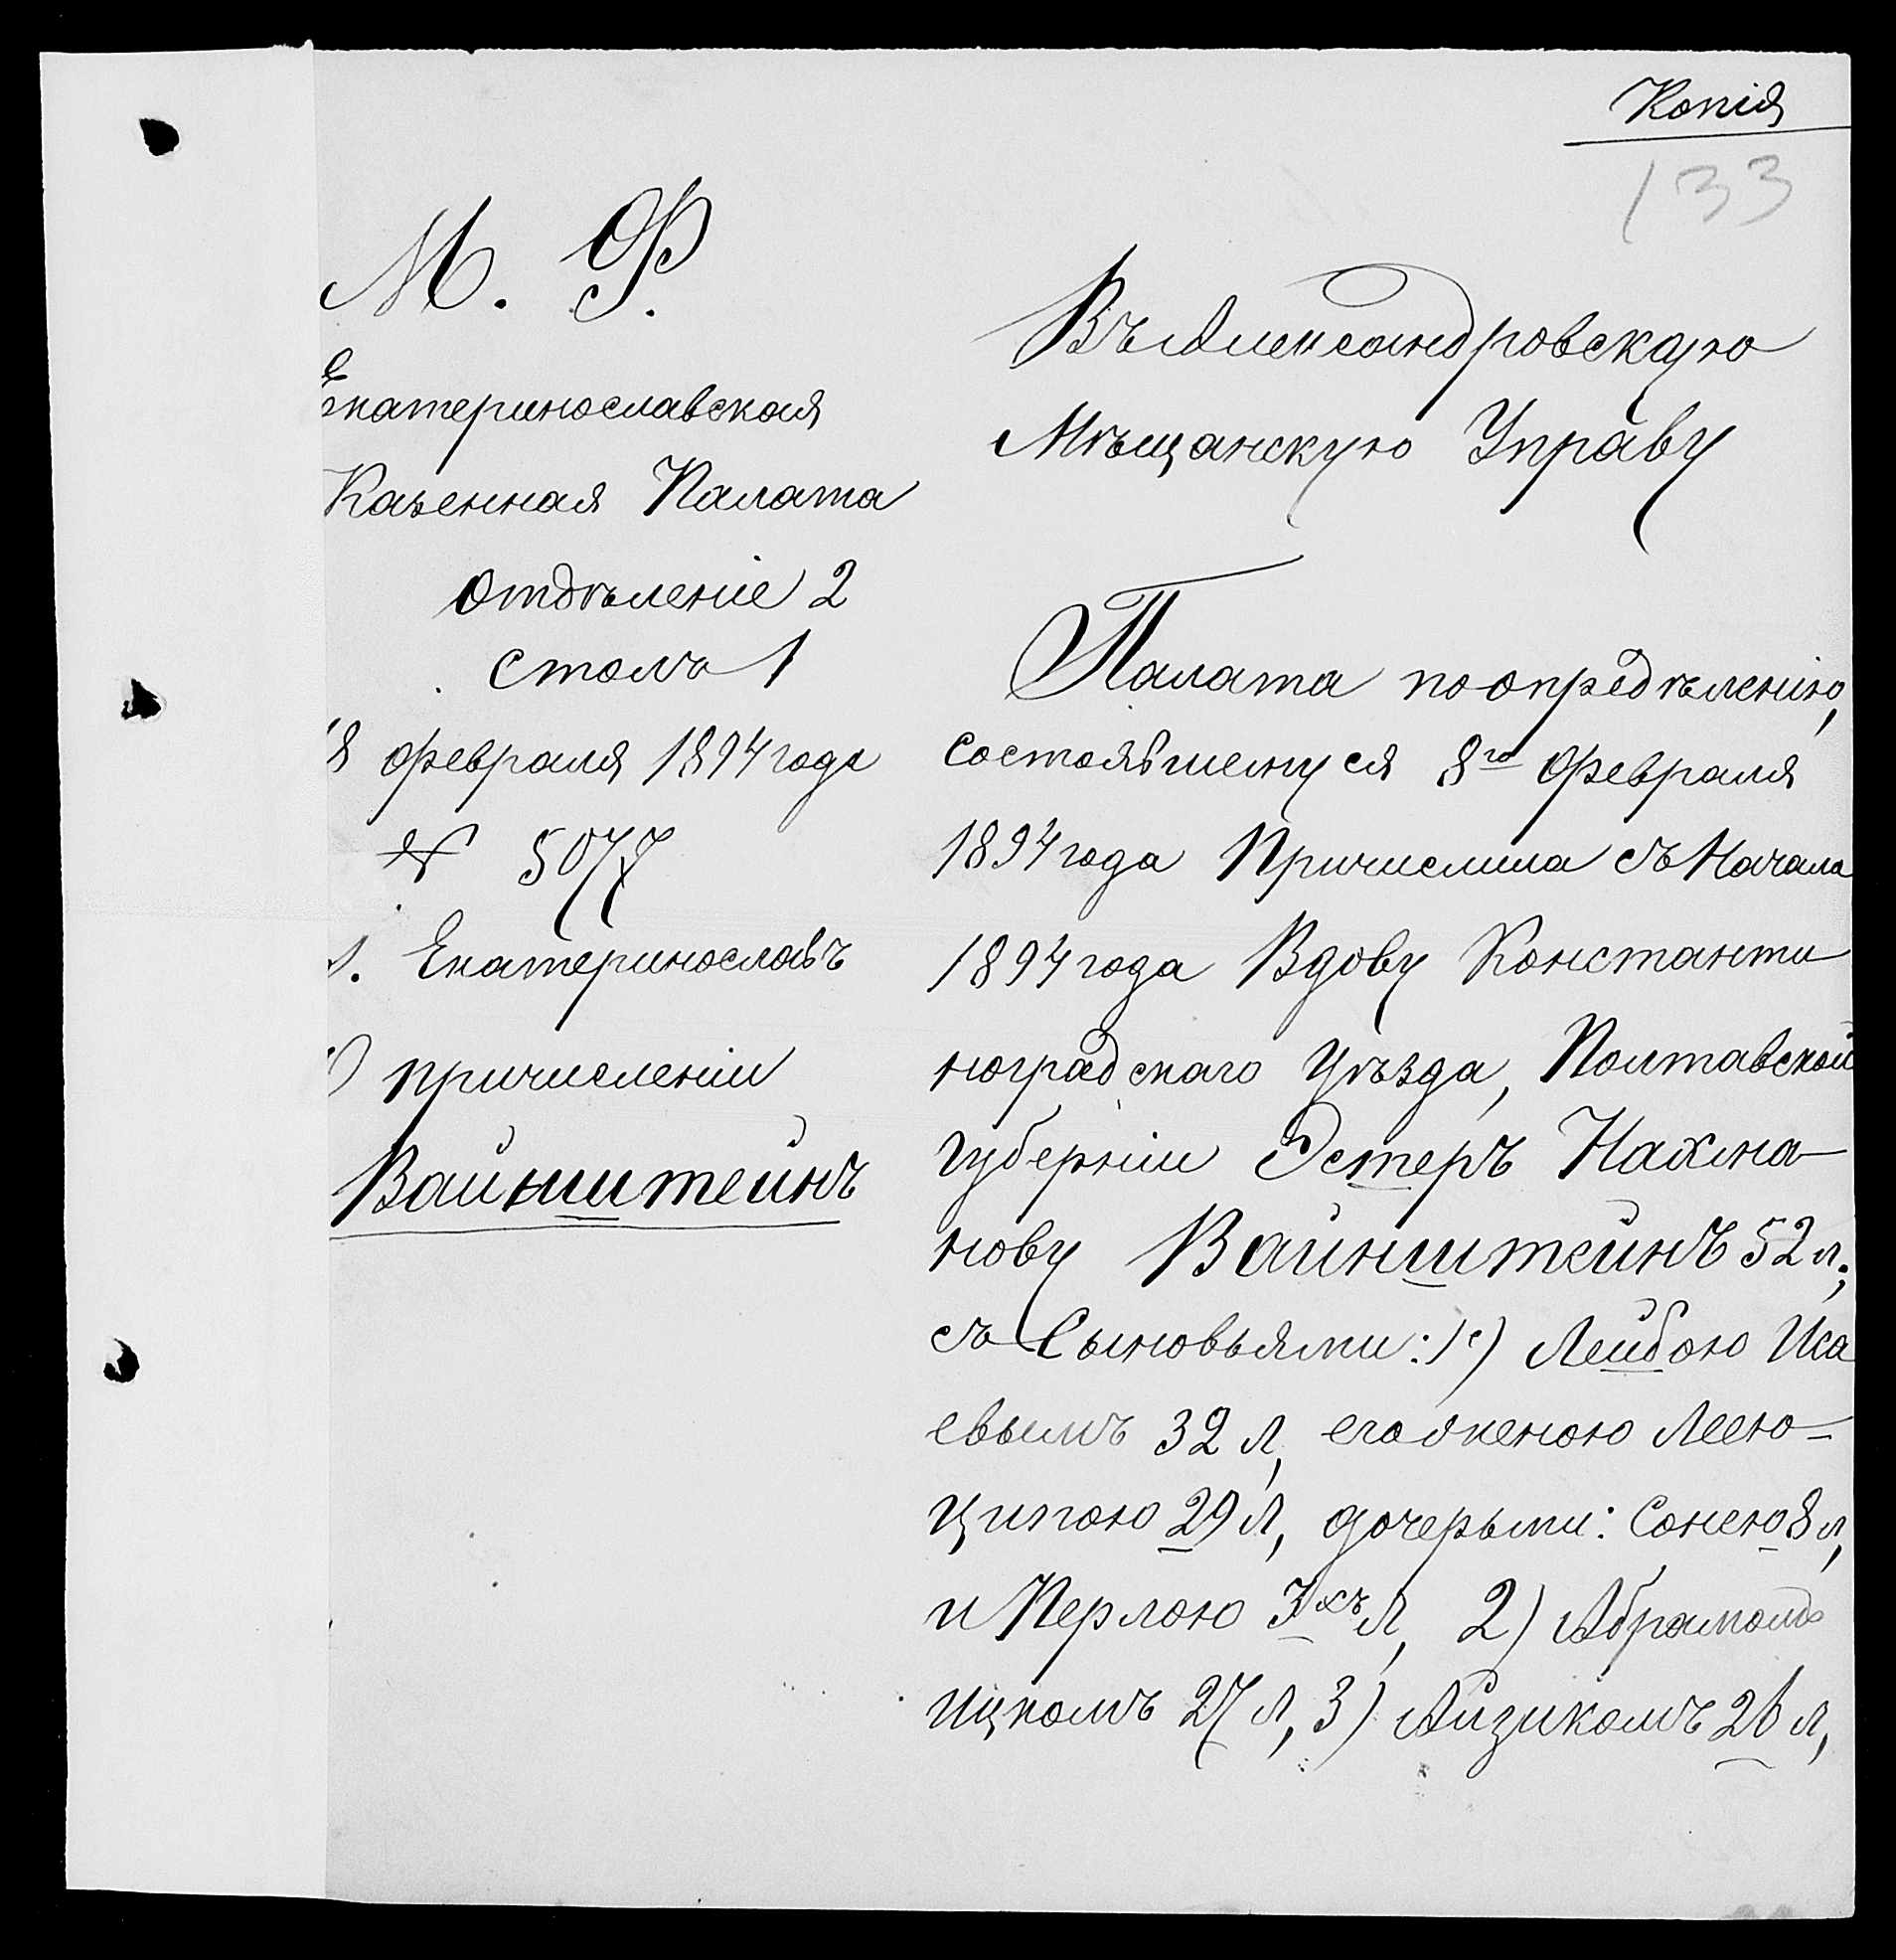 Копія
133
М. Ф.
Екатеринославская
Казенная Палата
Отдѣленіе 2
столъ 1
18 февраля 1894 года
№ 5077
г. Екатеринославъ
О причисленіи
Вайнштейнъ
Въ Александровскую
Мѣщанскую Управу
Палата по опредѣленію,
состоявшемуся 8го Февраля
1894 года Причислила съ Начала
1894 года Вдову Константи
ноградскаго Уѣзда, Полтавской
Губерніи Эстеръ Нахма-
нову Вайнштейнъ 52 л;
съ Сыновьями: 1е) Лейбою Иса
евымъ 32 л, его женою Леею-
Ципою 29 л, дочерьми: Сонею 8 л,
и Перлою 3хъ Л, 2) Абрамомъ
Ицкомъ 27 л, 3) Айзикомъ 26 л,